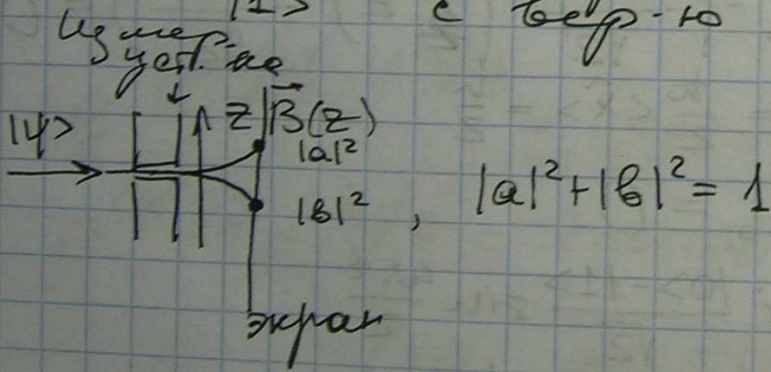 |1> с вер-ю
Измер.
уст-ва
|ψ>
Z
B⃗(z)
|a|²
|в|² , |a|²+|в|²= 1
экран